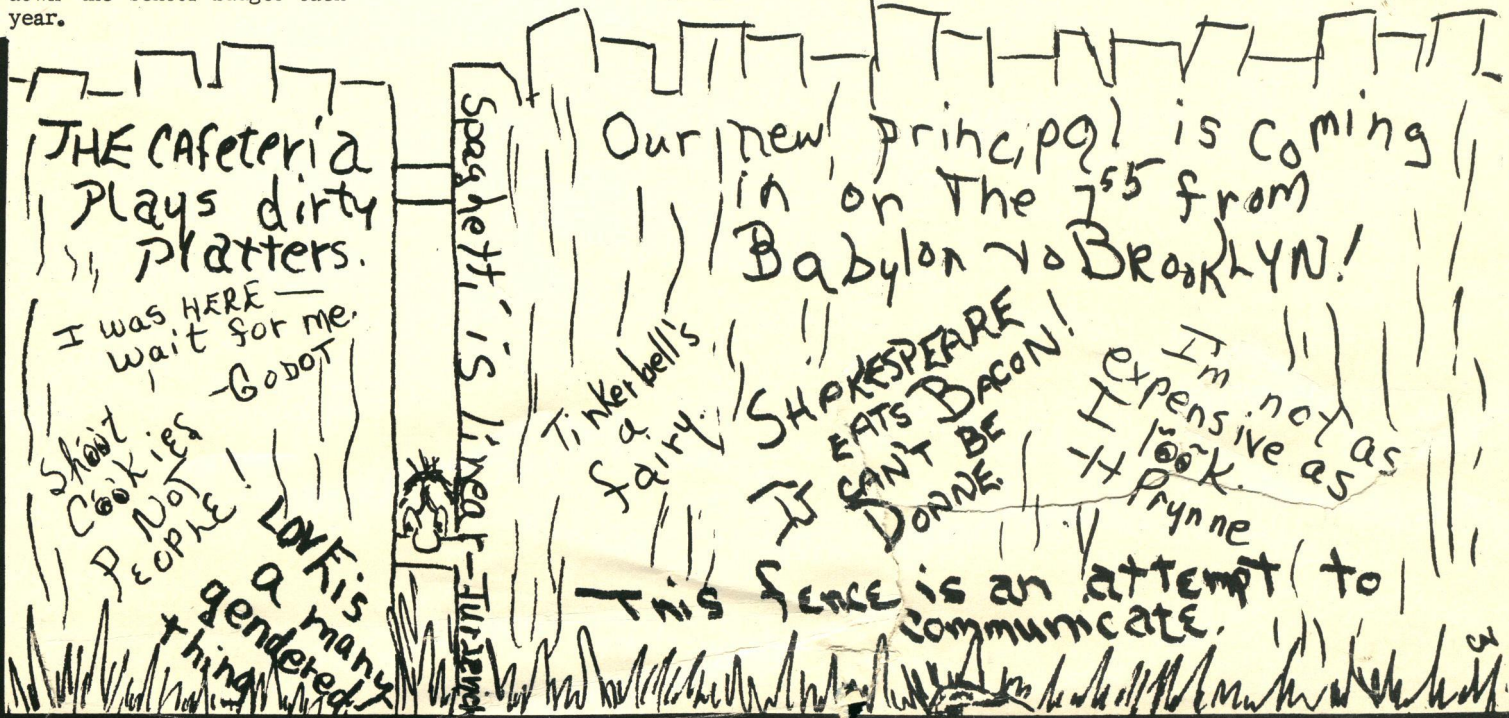 year.
THE CAfeteria
Plays dirty
Platters.
I was HERE —
wait for me.
-GODOT
Shoot
Cookies
NOT
PEOPLE!
LOVE is
a many
gendered
thing
Spaghetti is linear-
Our new principal is coming
in on The 7⁵⁵ from
Babylon to BRooKLYN!
Tinkerbell's
a
fairy.
SHAKESPEARE
EATS BACON!
It CAN'T BE
DONNE.
I'm not as
expensive as
I look.
-H Prynne
This fence is an attempt to
communicate.
3